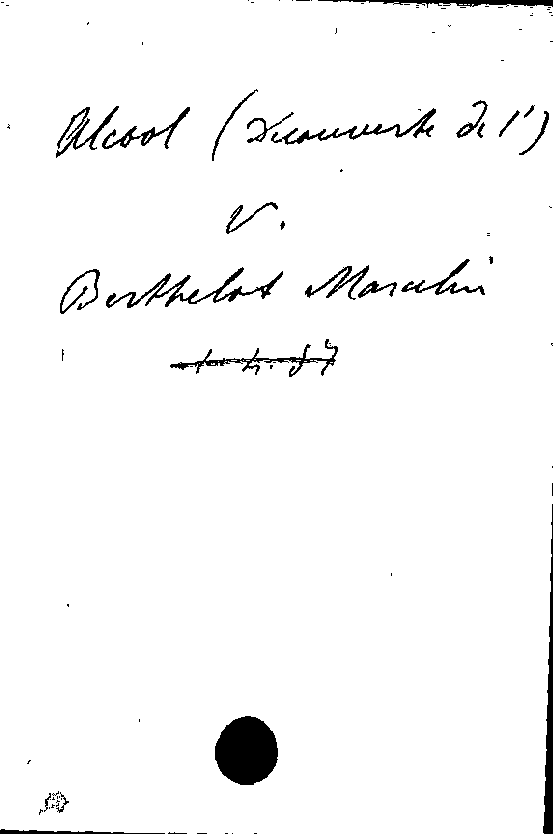 Alcool (Découverte de l')
V.
Berthelot Marcelin